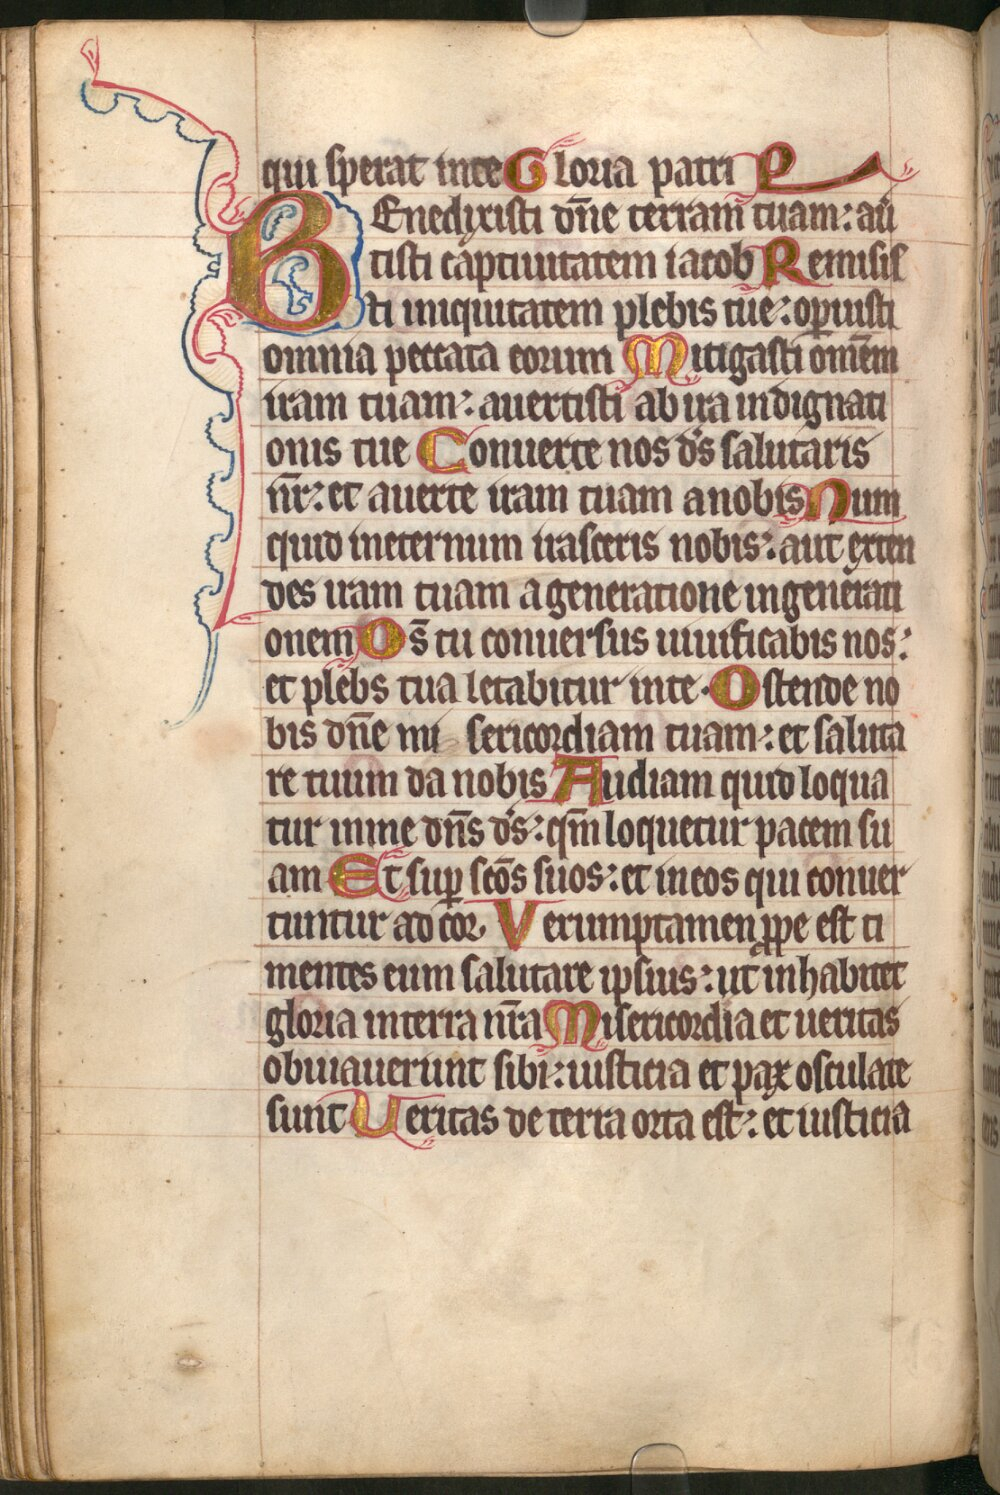 qui sperat in te Gloria patri P
BEnedixisti dn̄e terram tuam: au̅
tisti captiuitatem iacob Remisis
ti iniquitatem plebis tue: op̱uisti
omnia peccata eorum Mitigasti om̄em
iram tuam: auertisti ab ira indignati
onis tue Conuerte nos d̄s salutaris
nr̄: et auerte iram tuam a nobis Num
quid ineternum irasceris nobis: aut exten
des iram tuam a generatione in generati
onem Ds̄ tu conuersus uiuificabis nos:
et plebs tua letabitur in te. Ostende no
bis dn̄e mi sericordiam tuam: et saluta
re tuum da nobis Audiam quid loqua
tur in me dn̄s d̄s: qm̄ loquetur pacem su
am Et sup̱ scōs suos: et in eos qui conuer
tuntur ad cor. Verumptamen p̱pe est ti
mentes eum salutare ipsius: ut inhabitet
gloria in terra nr̄a Misericordia et ueritas
obuiauerunt sibi: iusticia et pax osculate
sunt Ueritas de terra orta est: et iusticia